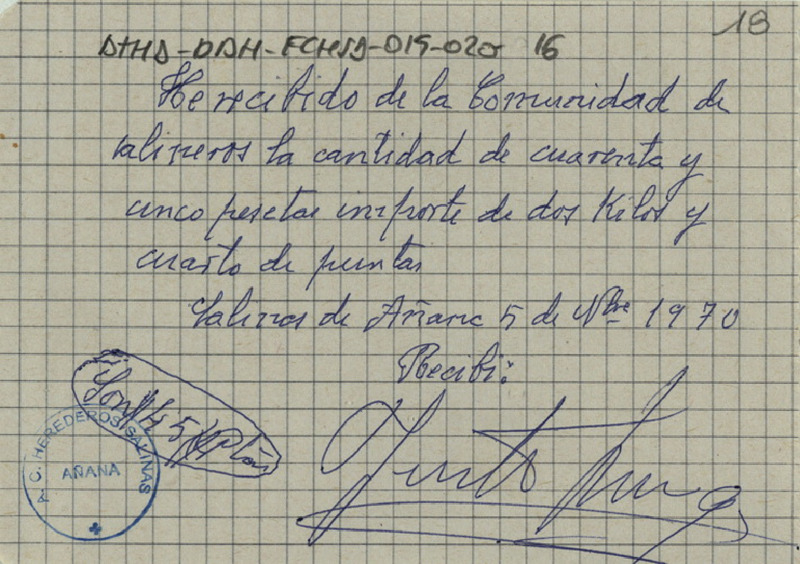 18
ATHA-DAH-FCHSA-015-020 16
He recibido de la Comunidad de
salineros la cantidad de cuarenta y
cinco pesetas importe de dos Kilos y
cuarto de puntas
Salinas de Añana 5 de Nbre 1970
Recibi:
Son #45# Ptas
A. C. HEREDEROS SALINAS
AÑANA